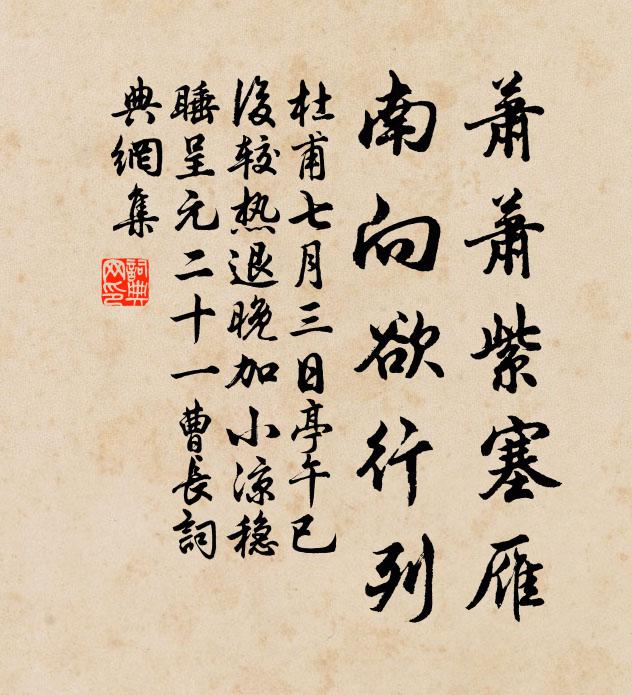 萧萧紫塞雁
南向欲行列
杜甫七月三日亭午已
後较热退晚加小凉稳
睡呈元二十一曹长詞
典網集
詞典
网印